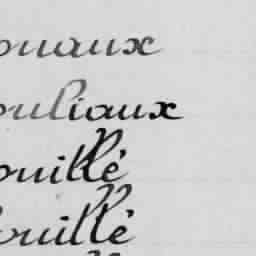 ouaux
ouliaux
ouillé
ouillé